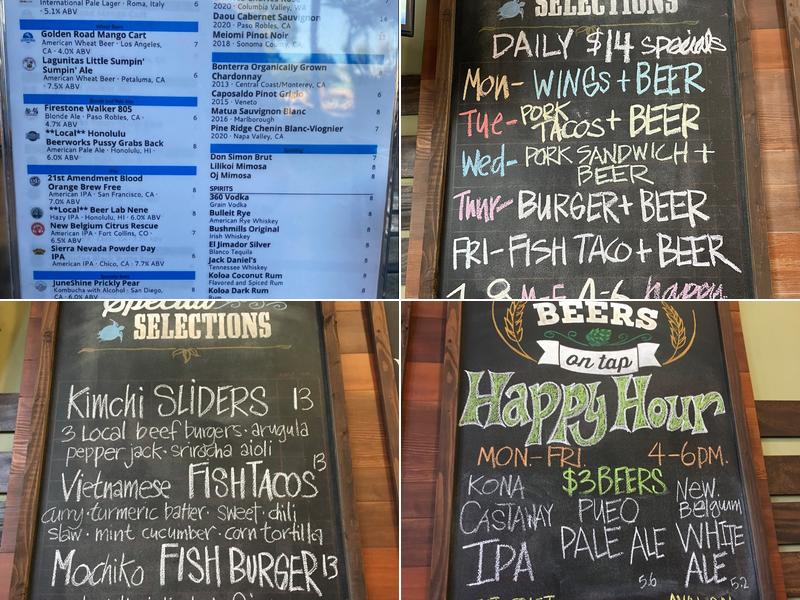 International Pale Lager · Roma, Italy 6
· 5.1% ABV
Wheat Beers
Golden Road Mango Cart
American Wheat Beer · Los Angeles, 7
CA · 4.0% ABV
Lagunitas Little Sumpin'
Sumpin' Ale
American Wheat Beer · Petaluma, CA 6
· 7.5% ABV
Firestone Walker 805
Blonde Ale · Paso Robles, CA · 6
4.7% ABV
**Local** Honolulu
Beerworks Pussy Grabs Back
American Pale Ale · Honolulu, HI · 8
6.0% ABV
21st Amendment Blood
Orange Brew Free
American IPA · San Francisco, CA · 8
7.0% ABV
**Local** Beer Lab Nene
Hazy IPA · Honolulu, HI · 6.0% ABV 8
New Belgium Citrus Rescue
American IPA · Fort Collins, CO · 7
6.5% ABV
Sierra Nevada Powder Day
IPA
American IPA · Chico, CA · 7.7% ABV 6
JuneShine Prickly Pear
Kombucha with Alcohol · San Diego, 8
CA · 6.0% ABV
2020 · Columbia Valley, WA
Daou Cabernet Sauvignon
2020 · Paso Robles, CA 14
Meiomi Pinot Noir
2018 · Sonoma County, CA 11
Bonterra Organically Grown
Chardonnay
2013 · Central Coast/Monterey, CA 8
Caposaldo Pinot Grigio
2015 · Veneto 6
Matua Sauvignon Blanc
2016 · Marlborough 8
Pine Ridge Chenin Blanc-Viognier
2020 · Napa Valley, CA 7
Don Simon Brut 7
Lilikoi Mimosa 8
Oj Mimosa 8
SPIRITS
360 Vodka
Grain Vodka 8
Bulleit Rye
American Rye Whiskey 8
Bushmills Original
Irish Whiskey 8
El Jimador Silver
Blanco Tequila 8
Jack Daniel's
Tennessee Whiskey 8
Koloa Coconut Rum
Flavored and Spiced Rum 8
Koloa Dark Rum
8
SELECTIONS
DAILY $14 specials
Mon- WINGS + BEER
Tue- PORK
TACOS + BEER
Wed- PORK SANDWICH +
BEER
Thur- BURGER + BEER
FRI- FISH TACO + BEER
M-F 4-6 happy
Special
SELECTIONS
Kimchi SLIDERS 13
3 Local beef burgers · arugula
pepper jack · sriracha aioli
Vietnamese FISH TACOS 13
curry-turmeric batter · sweet chili
slaw · mint cucumber · corn tortilla
Mochiko FISH BURGER 13
BEERS
on tap
Happy Hour
MON.-FRI. 4-6PM.
$3 BEERS
KONA
CASTAWAY
IPA
PUEO
PALE ALE
5.6
New
Belgium
WHITE
ALE 5.2